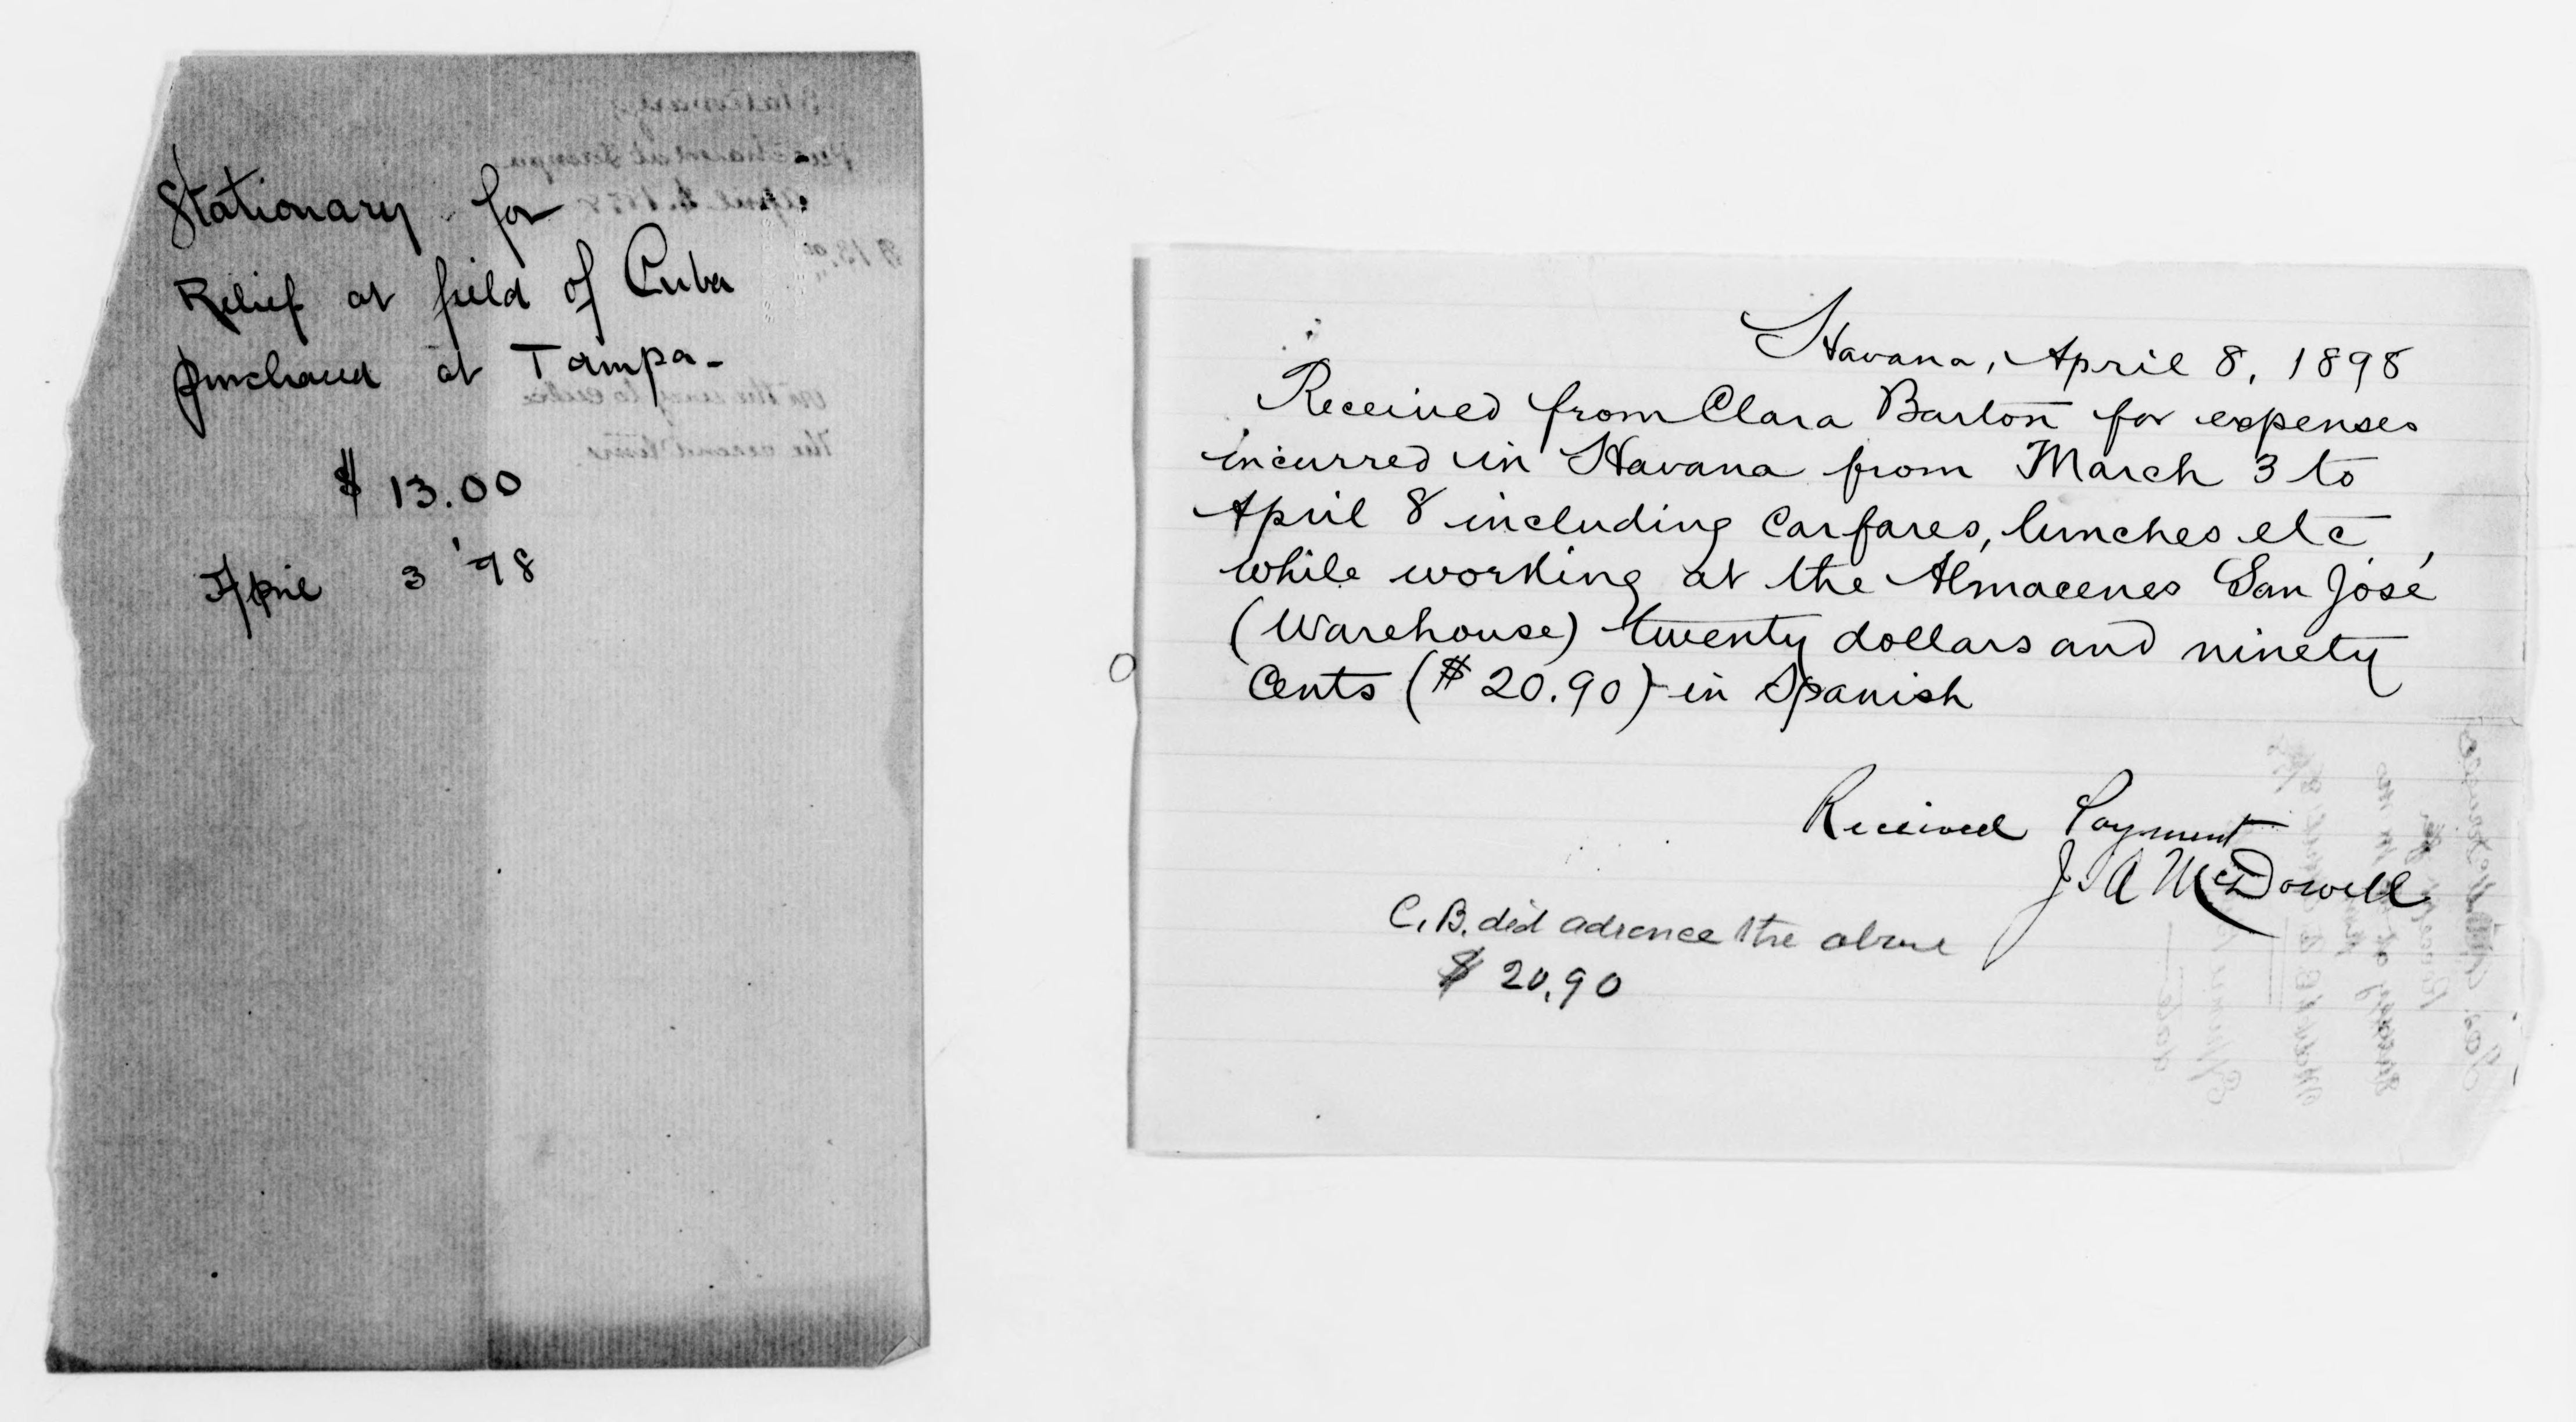 Stationary for
Relief at field of Cuba
purchased at Tampa-
$ 13.00
April 3 '98
Stationary
purchased at Tampa
April
$ 13.00
on the way to Cuba
the second time.
Havana, April 8, 1898
Received from Clara Barton for expenses
incurred in Havana from March 3 to
April 8 including carfares, lunches etc,
while working at the Almacenes San José
(Warehouse) twenty dollars and ninety
Cents ($ 20.90) in Spanish
Received Payment
J. A McDowell
C. B. did advance the above
$ 20.90